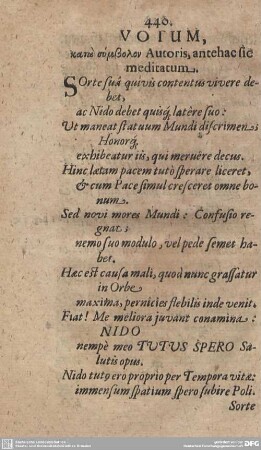 446.
VOTUM,
κατὰ σύμβολον Autoris, antehac sic
meditatum.
SOrte suâ quivis contentus vivere de-
bet,
ac Nido debet quisq; latêre suo:
Ut maneat statuum Mundi discrimen;
Honorq;
exhibeatur iis, qui meruêre decus.
Hinc lætam pacem tutò sperare liceret,
& cum Pace simul cresceret omne bo-
num.
Sed novi mores Mundi: Confusio re-
gnat;
nemo suo modulo, vel pede semet ha-
bet.
Hæc est causa mali, quod nunc grassatur
in Orbe
maxima, pernicies flebilis inde venit.
Fiat! Me meliora juvant conamina:
NIDO
nempè meo TUTUS SPERO Sa-
lutis opus.
Nido tut9 ero proprio per Tempora vitæ:
immensum spatium spero subire Poli.
Sorte